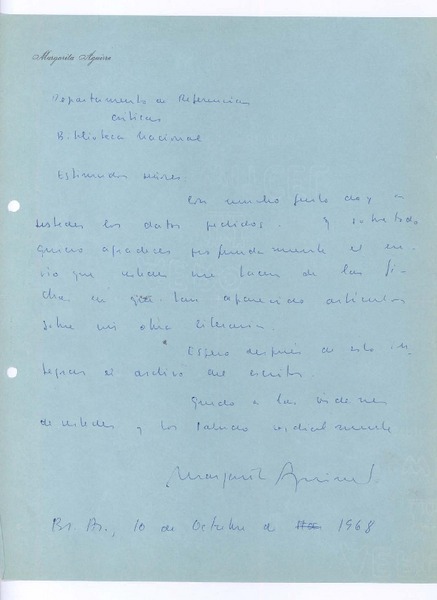 Margarita Aguirre
Departamento de Referencias
críticas
Biblioteca Nacional
Estimados señores:
Con mucho gusto doy a
ustedes los datos pedidos. Y sobre todo
quiero agradecer profundamente el en-
vío que ustedes me hacen de las fi-
chas en que han aparecido artículos
sobre mi obra literaria.
Espero después de esto in-
tegrar el archivo del escritor.
Quedo a las órdenes
de ustedes y los saludo cordialmente
Margarita Aguirre
Bs. As., 10 de Octubre de 1968